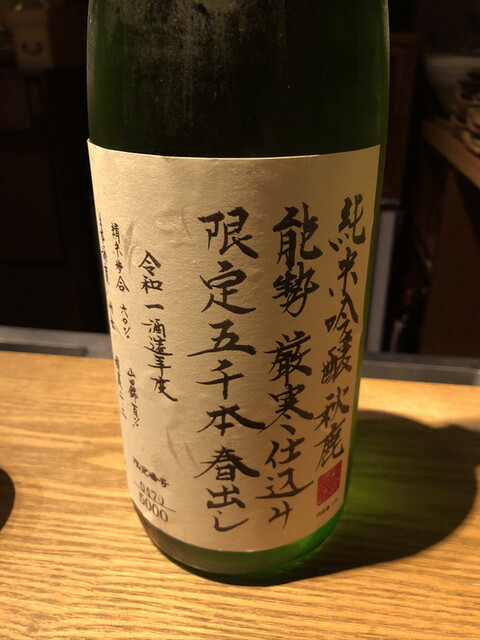 純米吟醸 秋鹿
能勢 厳寒仕込み
限定五千本春出し
令和一酒造年度
山田錦百%
精米歩合 六〇%
5000